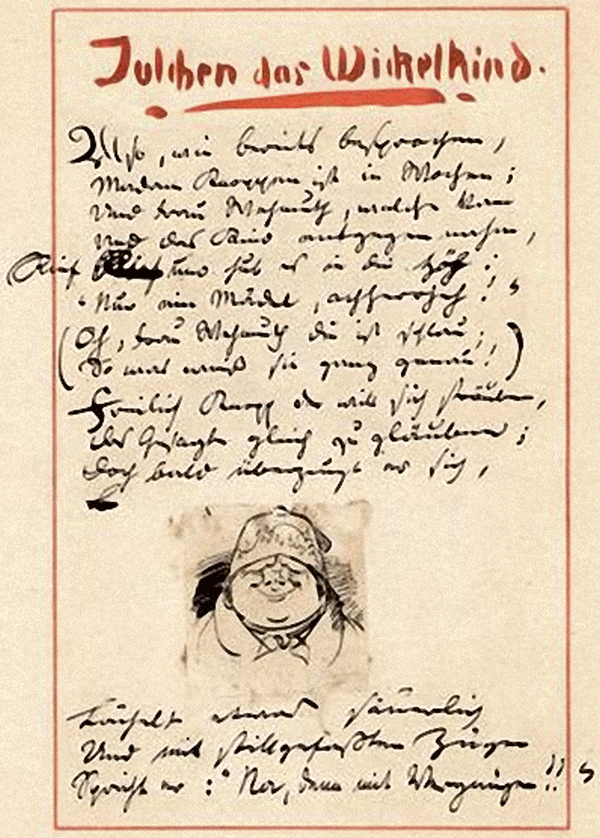 Julchen das Wickelkind.
Also, wie bereits besprochen,
Madam Knoppen ist in Wochen;
Und Frau Wehmuth, welche kam
Und das Kind entgegen nahm,
Rief und hub es in die Höh:
"Nur ein Mädel, achherrjeh!"
(Oh, Frau Wehmuth die ist schlau;
So was weiß sie ganz genau!)
Freilich Knopp der will sich sträuben,
Das Gesagte gleich zu gläuben;
Doch bald überzeugt er sich,
Lächelt etwas säuerlich
Und mit stillgefaßten Zügen
Spricht er: "Na, denn mit Vergnügen!!"